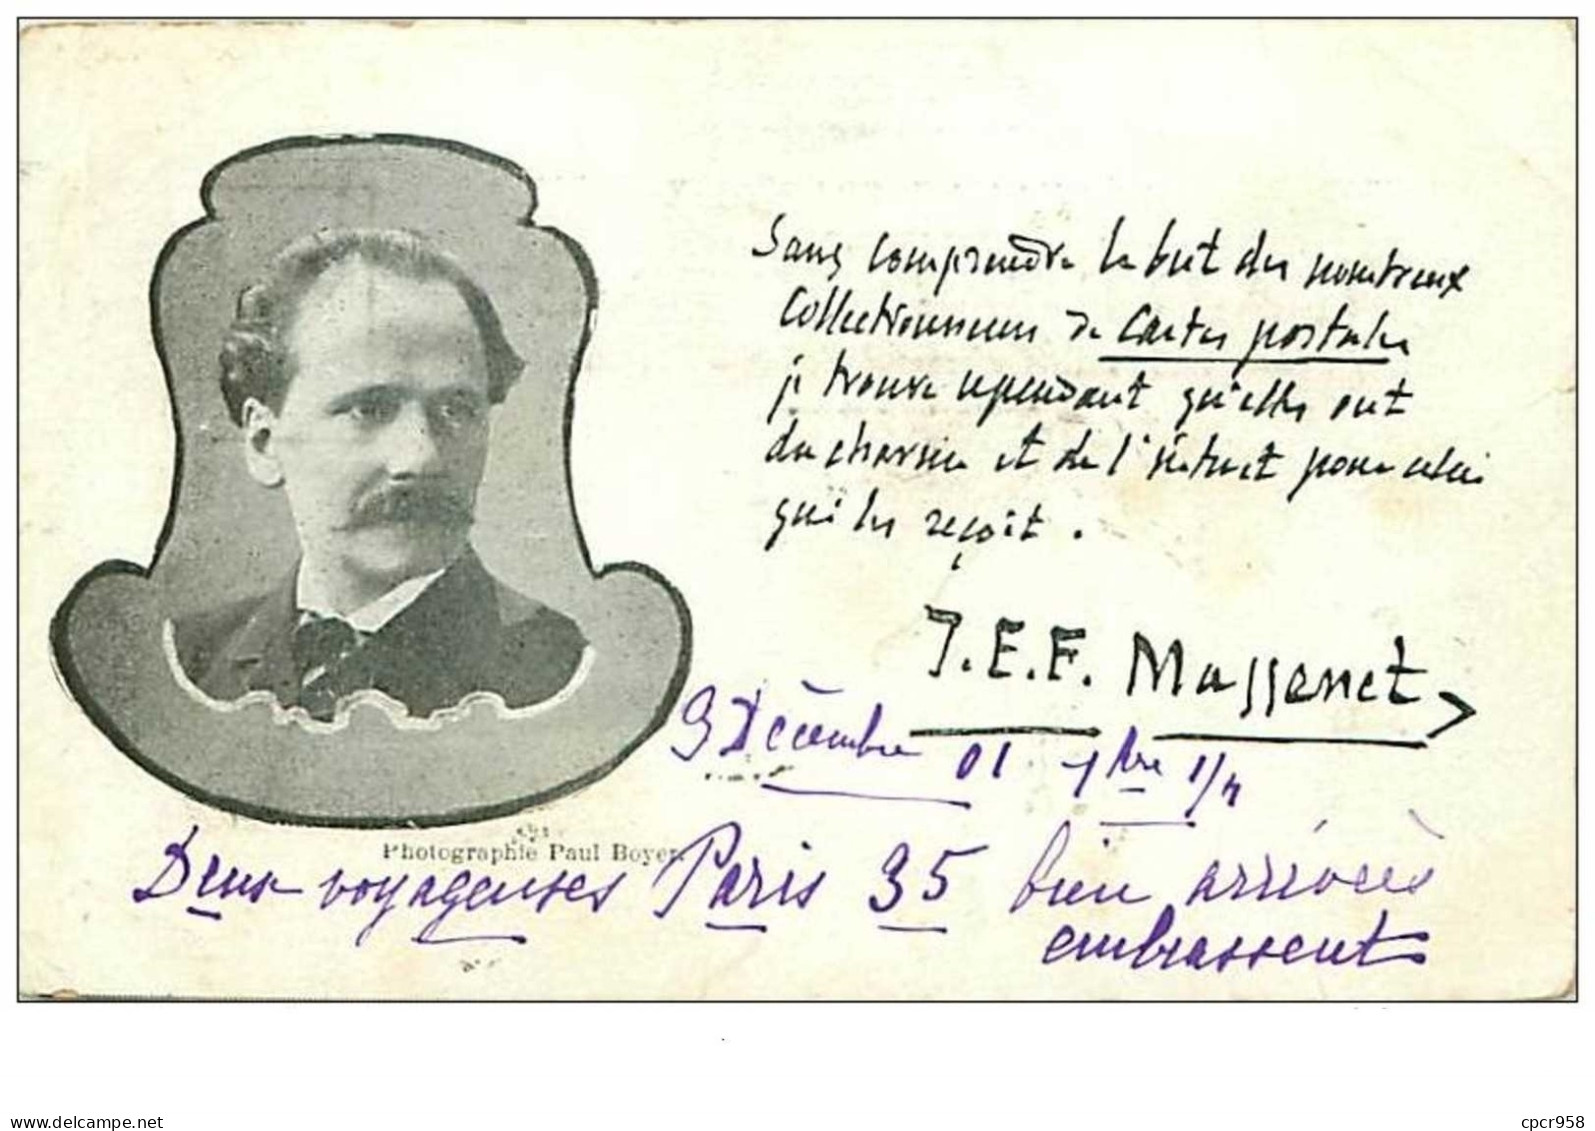 Sans comprendre le but des nombreux
Collectionneurs de Cartes postales
je trouve cependant qu'elles ont
du charme et de l'intérêt pour celui
qui les reçoit.
J. E. F. Massenet
3 Décembre 01 1/4
Photographie Paul Boyer.
Deux voyageuses Paris 35 bien arrivées
embrassent
delcampe.net
cpcr958